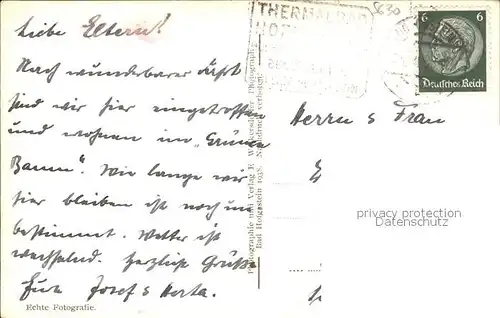 Liebe Eltern!
Nach wunderbarer Fahrt
sind wir hier eingetroffen
und wohnen im "Grünen
Baum". Wie lange wir
hier bleiben ist noch un
bestimmt. Wetter ist
wechselnd. Herzliche Grüße
Eure Josef s Herta.
Echte Fotografie.
Photographie und Verlag
Bad Hofgastein 1938. Nachdruck verboten.
THERMALBAD
HOF
5630
6 6
Deutsches Reich
Herrn s Frau
privacy protection
Datenschutz